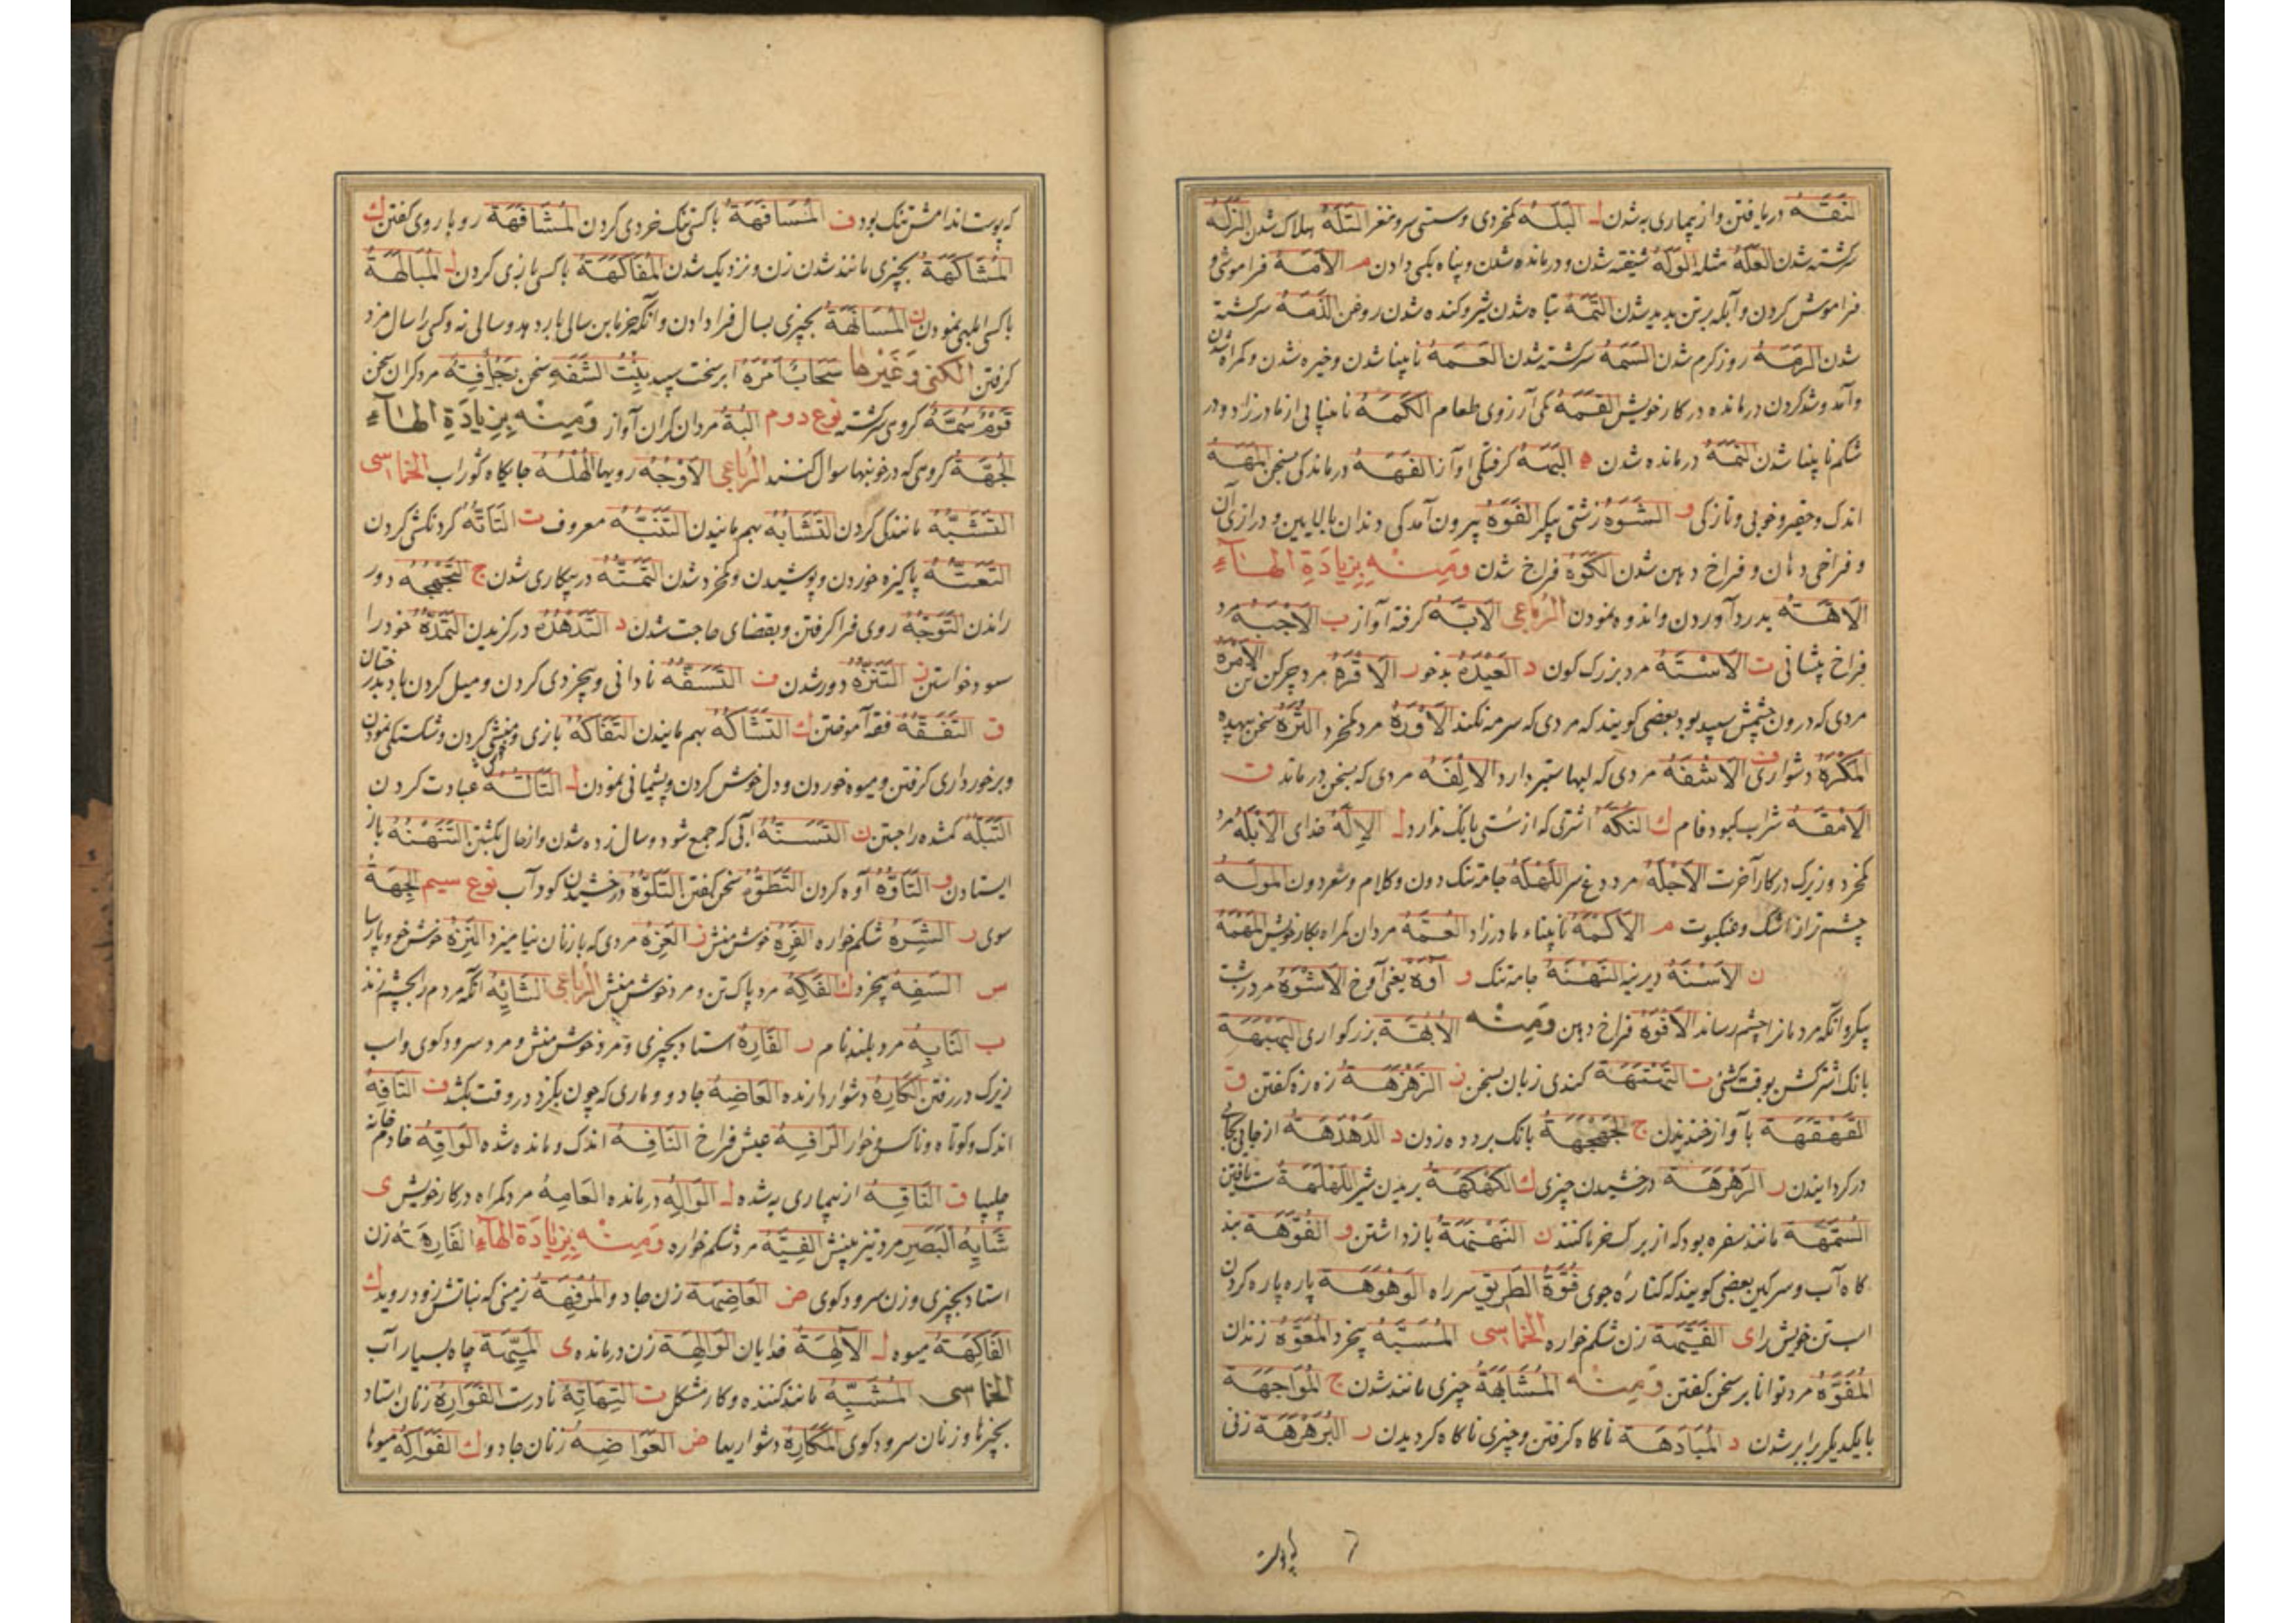 النَقَهُ دریافتن و از بیماری به شدن ل البَلَهُ کمخردی و سستی سر و مغز التَلَهُ هلاک شدن الزَلَهُ
سرکشته شدن العَلَهُ مثله الوَلَهُ شیفته شدن و درمانده شدن و پناه بکسی دادن م الاَمَهُ فراموشی و
فراموش کردن و آبله بر تن پدید شدن التَمَهُ تباه شدن شیر و کنده شدن روغن الدَمَهُ سرکشته
شدن الرَمَهُ روز کرم شدن السَمَهُ سرکشته شدن العَمَهُ نابینا شدن و خیره شدن و کمراه شدن
و آمد و شد کردن درمانده در کار خویش القَمَهُ کمی آرزوی طعام الکَمَهُ نابینایی از مادرزاد و در
شکم نابینا شدن النَمَهُ درمانده شدن ه البَهَهُ کرفتکی اواز الفَهَهُ درماندکی بسخن المَهَهُ
اندک و حقیر و خوبی و تازکی و الشَوَهُ زشتی پیکر الفَوَهُ بیرون آمدکی دندان بالایین و درازی آن
و فراخی دهان و فراخ دهن شدن الکَوَهُ فراخ شدن وَمِنْهُ بِزِیادَةِ الهَاءِ
الآهَةُ بدرد آوردن و اندوه نمودن الرُباعی الاَبَهُ کرفته آواز ب الاَجبَهُ مرد
فراخ پیشانی ت الاَسْتَهُ مرد بزرک کون د العَیدَهُ بدخو ر الاَقرَهُ مرد چرکن تن الاَمرَهُ
مردی که درون چشمش سپید بود بعضی کویند که مردی که سرمه نکند الاَورَهُ مرد کمخرد التُرَّهُ سخن بیهده
المَکْرَهُ دشواری ف الاَشفَهُ مردی که لبها ستبر دارد الاِلفَهُ مردی که بسخن درماند ق
الاَمقَهُ شراب کبود فام ک النَکَهُ اشتری که از سستی بانک ندارد ل الاِلهُ خدای الاَبلَهُ مرد
کمخرد و زیرک در کار آخرت الاَجلَهُ مرد دغ سر اللَهلَهُ جامه تنک دون و کلام و شعر دون المولَهُ
چشم تر از اشک و عنکبوت م الاَکمَهُ نابیناء مادرزاد العُمَّهُ مردان کمراه بکار خویش المَهمَهُ
ن الاَسنَهُ دیرینه النَهنَهُ جامه تنک و آوَهْ یعنی آوخ الاَشوَهُ مرد زشت
پیکر و آنکه مردمانرا چشم رساند الاَفوَهُ فراخ دهن وَمِنْهُ الاُبَّهَةُ بزرکواری البَهبَهَةُ
بانک اشتر کشن بوقت کشنی ت التَهتَهَةُ کندی زبان بسخن ز الزَهزَهَةُ زه زه کفتن ق
القَهقَهَةُ بآواز خندیدن ج الجَهجَهَةُ بانک بر دده زدن د الدَهدَهَةُ از جایی بجایی
در کردانیدن ر الرَهرَهَةُ درخشیدن چیزی ک الکَهکَهَةُ اللَهلَهَةُ یافتن
السُمَّهَةُ مانند سفره بود که از برک خرما کنند ن النَهنَهَةُ باز داشتن و الفُوَّهَةُ بند
کاه آب و سرکین بعضی کویند که کناره جوی فُوَّهَةُ الطَریقِ سر راه الوَهوَهَةُ پاره پاره کردن
اب تن خویش رای الفَیِّهَةُ زن شکم خواره الخُماسی المُسَبَّهُ بیخرد المُعَوَّهُ زندان
المُفَوَّهُ مرد توانا بر سخن کفتن وَمِنْهُ المُشابَهَةُ چیزی مانند شدن ج المُواجَهَةُ
با یکدیکر برابر شدن د المُبادَهَةُ ناکاه کرفتن و چیزی ناکاه کردیدن ر البَرَهرَهَةُ زنی
که پوست اندامش تنک بود ف المُسافَهَةُ با کسی تنک خردی کردن المُشافَهَةُ روبا روی کفتن ک
المُشاکَهَةُ بچیزی مانند شدن زن و نزدیک شدن المُفاکَهَةُ با کسی بازی کردن ل المُبالَهَةُ
با کسی ابلهی نمودن ن المُسانَهَةُ بچیزی بسال فرا دادن و آنکه خرمابن سالی بار دهد و سالی نه و کسی را سال مزد
کرفتن الکنی وَغَیرها سَحابٌ اَمرَهُ ابر سخت سپید بِنْتُ الشَفَهِ سخن مرد کران سخن
قَومٌ سُمَّهٌ کروهی سرکشته نوع دوم البُهُّ مردان کران آواز وَمِنْهُ بِزِیادَةِ الهاءِ
الجُهَّةُ کروهی که در خونبها سوال کنند الرُباعی الاَوْجُهُ رویها الهُلُهُ جایکاه کوراب الخماسی
التَشَبُّهُ مانندکی کردن التَشابُهُ بهم مانیدن التَنَبُّهُ معروف ت التَاَتُّهُ کردنکشی کردن
التَعَتُّهُ پاکیزه خوردن و پوشیدن و کمخرد شدن التَمَتُّهُ در بیکاری شدن ج التَجَهجُهُ دور
راندن التَوَجُّهُ روی فرا کرفتن و بقضای حاجت شدن د التَدَهدُهُ در کزیدن التَمَدُّهُ خود را
سود خواستن ز التَنَزُّهُ دور شدن ف التَسَفُّهُ نادانی و بیخردی کردن و میل کردن باد بدرختان
ق التَفَقُّهُ فقه آموختن ک التَشاکُهُ بهم مانیدن التَفاکُهُ بازی و منشی کردن و شکستکی نمودن
و برخورداری کرفتن و میوه خوردن و دل خوش کردن و پشیمانی نمودن ل التَاَلُّهُ عبادت کردن
التَبَلُّهُ کمشده را جستن ن التَسَنُّهُ آبی که جمع شود و سال زده شدن و از حال بکشتن التَنَهنُهُ باز
ایستادن و التَاَوُّهُ آوه کردن التَطَوُّهُ سخن کفتن التَلَوُّهُ درخشیدن کود آب نوع سیم الجِهَةُ
سوی ر الشَرِهُ شکم خواره الفَرِهُ خوش منش ز العَزِهُ مردی که با زنان نیامیزد النَزِهُ خوش خو و پارسا
س السَفِهُ بیخرد ک الفَکِهُ مرد پاک تن و مرد خوش منش الرُباعی الشائِهُ آنکه مردم را بچشم زند
ب النابِهُ مرد بلند نام ر الفارِهُ استاد بچیزی و مرد خوش منش و مرد سرود کوی و اب
زیرک در رفتن الکارِهُ دشوار دارنده العاضِهُ جادو و ماری که چون بکزد در وقت بکشد ف التافِهُ
اندک و کوتاه و ناکس و خوار الرافِهُ عیش فراخ النافِهُ اندک و مانده شده الواقِهُ خادم خانه
چلیپا ق الناقِهُ از بیماری به شده ل الوالِهُ درمانده العامِهُ مرد کمراه در کار خویش ی
شائِهُ البَصَرِ مرد تیز بینش الفَیِّهُ مرد شکم خواره وَمِنْهُ بِزِیادَةِ الهاءِ الفارِهَةُ زن
استاد بچیزی و زن سرود کوی ض العاضِهَةُ زن جادو المُرفِهَةُ زمینی که نباتش زود روید ک
الفاکِهَةُ میوه ل الآلِهَةُ خدایان الوالِهَةُ زن درمانده ی المَیِّهَةُ چاه بسیار آب
الخماسی المُشَبِّهُ مانند کننده و کار مشکل ت التَهاتِهُ نادرست الفَوارِهُ زنان استاد
بچیزها و زنان سرود کوی المَکارِهُ دشواریها ض العَواضِهُ زنان جادو ک الفَواکِهُ میوها